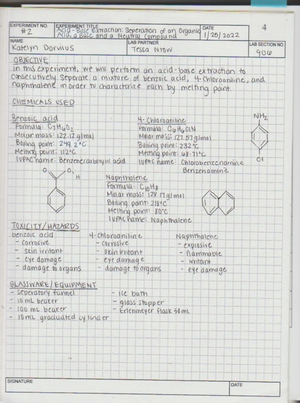 EXPERIMENT NO.
#2
EXPERIMENT TITLE
Acid-Base Extraction: Seperation of an Organic
Acid, a Base and a Neutral Compound
DATE
1/20/2022
4
NAME
Katelyn
LAB PARTNER
Tessa
LAB SECTION NO.
906
OBJECTIVE
In this experiment, we will perform an acid-base extraction to
consecutively separate a mixture of benzoic acid, 4-Chloroaniline, and
naphthalene in order to characterize each by melting point.
CHEMICALS USED
Benzoic acid
Formula: C7H6O2
Molar mass: 122.12 g/mol
Boiling point: 249.2°C
Melting point: 112°C
IUPAC name: Benzenecarboxylic acid
4-Chloroaniline
Formula: C6H6ClN
Molar mass: 127.57 g/mol
Boiling point: 232°C
Melting point: 68-71°C
IUPAC name: Chlorobenzenamine
Benzenamine
NH2
Cl
O
O
H
Naphthalene
Formula: C10H8
Molar mass: 128.17 g/mol
Boiling point: 218°C
Melting point: 80°C
IUPAC name: Naphthalene
TOXICITY/HAZARDS
benzoic acid
- corrosive
- skin irritant
- eye damage
- damage to organs
4-Chloroaniline
- corrosive
- skin irritant
- eye damage
- damage to organs
Naphthalene
- explosive
- flammable
- irritant
- eye damage
GLASSWARE/EQUIPMENT
- seperatory funnel
- 10 mL beaker
- 100 mL beaker
- 10mL graduated cylinder
- ice bath
- glass stopper
- Erlenmeyer flask 50mL
SIGNATURE
DATE